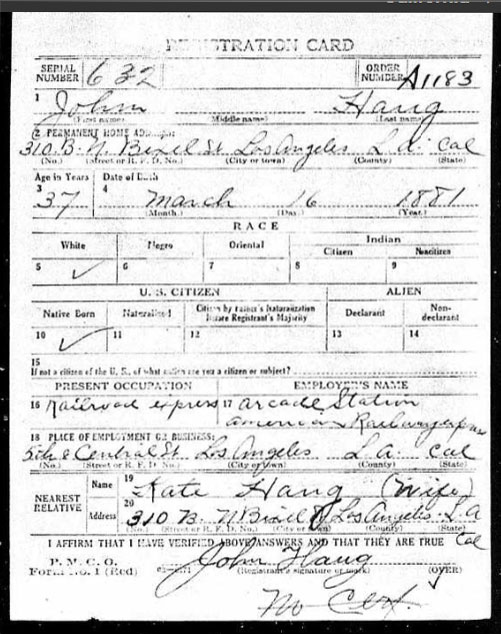 REGISTRATION CARD
SERIAL NUMBER 632 ORDER NUMBER A1183
1 John Haug
(First name) (Middle name) (Last name)
2 PERMANENT HOME ADDRESS:
310 B. N. Bixel St Los Angeles L.A. Cal
(No.) (Street or R. F. D. No.) (City or town) (County) (State)
Age in Years Date of Birth
3 37 4 March 16 1881
(Month.) (Day.) (Year.)
RACE
White Negro Oriental Indian
Citizen Noncitizen
5 ✓ 6 7 8 9
U. S. CITIZEN ALIEN
Native Born Naturalized Citizen by Father's Naturalization Before Registrant's Majority Declarant Non-declarant
10 ✓ 11 12 13 14
15
If not a citizen of the U. S., of what nation are you a citizen or subject?
PRESENT OCCUPATION EMPLOYER'S NAME
16 Railroad express 17 Arcade Station
American Railway Express
18 PLACE OF EMPLOYMENT OR BUSINESS:
5th & Central St Los Angeles L.A. Cal
(No.) (Street or R. F. D. No.) (City or town) (County) (State)
NEAREST RELATIVE Name 19 Kate Haug (Wife)
Address 20 310 B. N Bixel St Los Angeles L.A Cal
(No.) (Street or R. F. D. No.) (City or town) (County) (State)
I AFFIRM THAT I HAVE VERIFIED ABOVE ANSWERS AND THAT THEY ARE TRUE
P. M. G. O.
Form No. 1 (Red) John Haug
(Registrant's signature or mark) (OVER)
No Cert